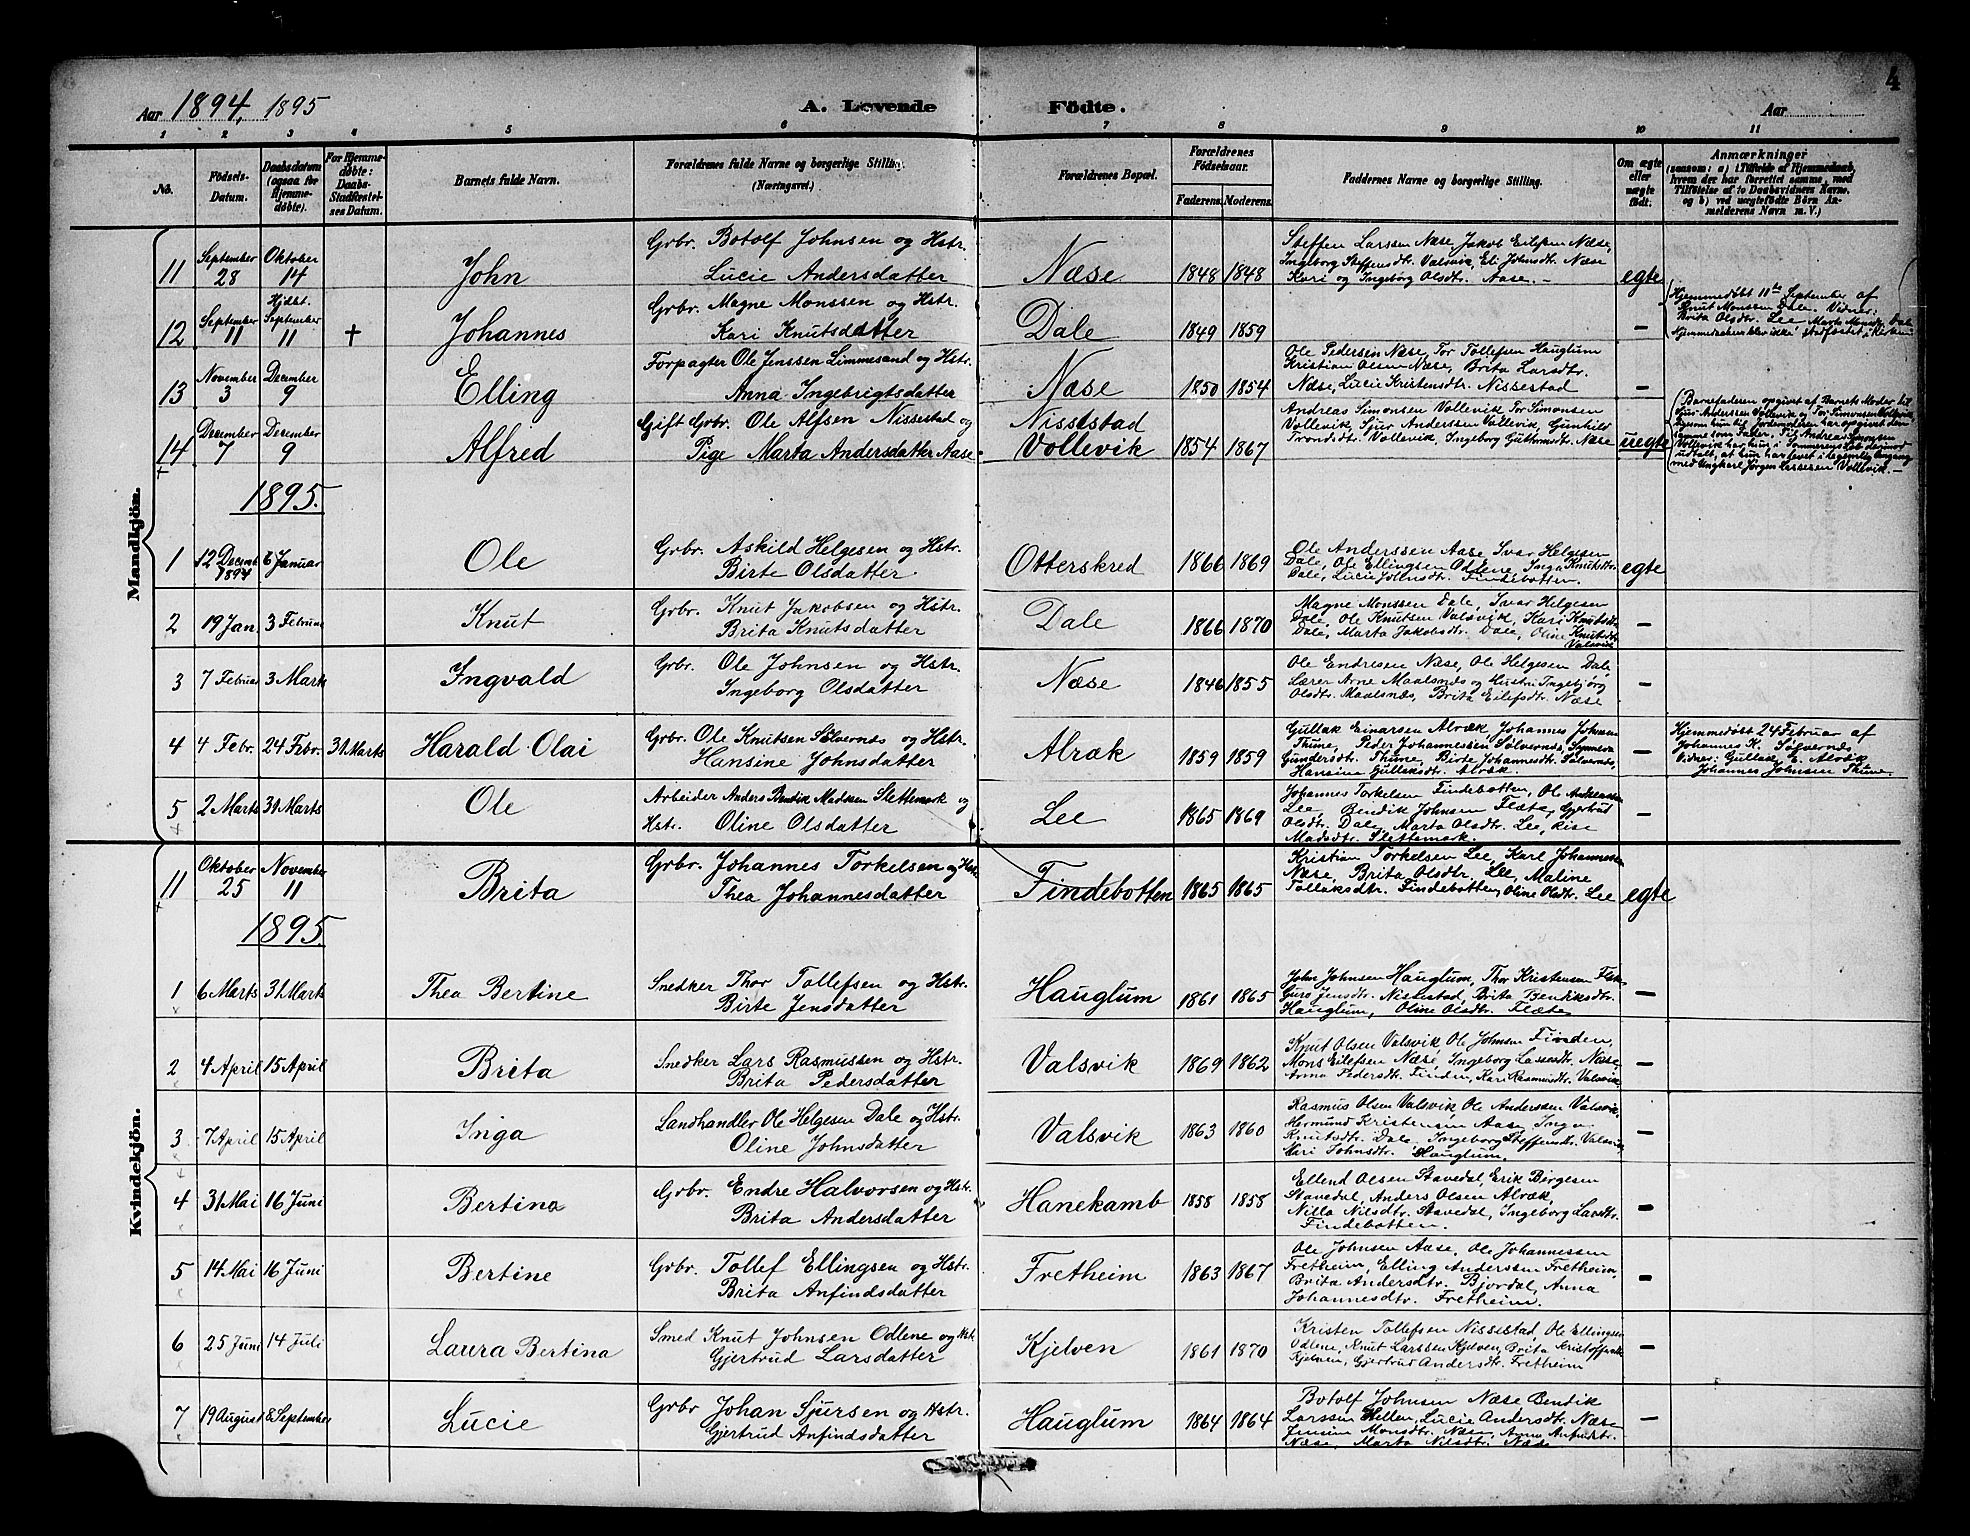 4
Aar 1894, 1895 A. Levende Födte. Aar
1 2 3 4 5 6 7 8 9 10 11
No. Födsels-Datum. Daabsdatum (ogsaa for Hjemmedöbte). For Hjemmedöbte: Daabs-Stadfæstelses Datum. Barnets fulde Navn. Forældrenes fulde Navne og borgerlige Stilling (Næringsvei.) Forældrenes Bopæl. Forældrenes Födselsaar. Faderens. Moderens. Faddernes Navne og borgerlige Stilling. Om ægte eller uægte födt. Anmærkninger (saasom: a) i Tilfælde af Hjemmedaab, hvem der har forrettet samme, med Tilföielse af to Daabsvidners Navne, og b) ved uægtefödte Börn Anmelderens Navn m. V.)
Mandkjön.
11 September 28 Oktober 14 John Grbr. Botolf Johnsen og Hstr. Lucie Andersdatter Næse 1848 1848 Steffen Larssen Næse, Jakob Eilefsen Næse, Ingeborg Steffensdtr. Valsvik, Eli Johnsdtr. Næse Kari og Ingeborg Olsdtr. Aase. egte
12 September 11 September 11 † Johannes Grbr. Magne Monssen og Hstr. Kari Knutsdatter Dale 1849 1859 — Hjemmedöbt 11te September af Knut Monsen Dale. Vidner: Brita Olsdtr. Lee, Marta Dale
13 November 3 December 9 Elling Forpagter Ole Jenssen Limmesand og Hstr. Anna Ingebrigtsdatter Næse 1850 1854 Ole Pedersen Næse, Tor Tollefsen Hauglum Kristian Olsen Næse, Brita Larsdtr. Næse, Lucie Kristensdtr. Nissestad —
14 December 7 December 9 Alfred Gift Grbr. Ole Alfsen Nissestad og Pige Marta Andersdatter Aase Nissestad Vollevik 1854 1867 Andreas Simonsen Vollevik Tor Simonsen Vollevik, Sjur Anderssen Vollevik, Gunhild Trondsdtr. Vollevik, Ingeborg Guthmsdtr. Næse uegte Barnefaderen opgivet af Barnets Moder til Sjur Anderssen Vollevik og Tor Simonsen Vollevik, ligesom hun til Jordemoderen har opgivet den samme som Fader. Til Andreas Simonsen Vollevik har hun i Sommerens Löb derimod udtalt, at hun har levet i legemlig Omgang med Ungkarl Jörgen Lassesen Vollevik. —
1895.
1 12 Decemb 1894 6 Januar Ole Grbr. Askild Helgesen og Hstr. Birte Olsdatter Otterskred 1866 1869 Ole Anderssen Aase Ivar Helgesen Dale, Ole Ellingsen Odlene, Inga Knutsdtr. Dale, Lucie Johnsdtr. Findebotten. egte
2 19 Jan. 3 Februar Knut Grbr. Knut Jakobsen og Hstr. Brita Knutsdatter Dale 1866 1870 Magne Monssen Dale, Ivar Helgesen Dale, Ole Knutsen Valsvik, Kari Knutsdtr. Dale, Marta Jakobsdtr. Dale, Oline Knutsdtr. Valsvik —
3 7 Februar 3 Marts Ingvald Grbr. Ole Johnsen og Hstr. Ingeborg Olsdatter Næse 1846 1855 Ole Endresen Næse, Ole Helgesen Dale, Lærer Arne Maalsnæs og Hustru Ingebjörg Olsdtr. Maalsnæs, Brita Eilefsdtr. Næse —
4 4 Febr. 24 Febr. 31 Marts Harald Olai Grbr. Ole Knutsen Sölvernæs og Hstr. Hansine Johnsdatter Alræk 1859 1859 Gullak Einarsen Alræk, Johannes Johnsen Thune, Peder Johannessen Sölvernæs, Synneva Gundersdtr. Thune, Birte Johannesdtr. Sölvernæs, Hansina Gullaksdtr. Alræk. — Hjemmedöbt 24 Februar af Johannes K. Sölvernæs Vidner: Gullak E. Alræk Johannes Johnsen Thune.
5 2 Marts 31 Marts Ole Arbeider Anders Bendik Madssen Slettemark og Hstr. Oline Olsdatter Lee 1865 1869 Johannes Torkelsen Findebotten, Ole Anderssen Lee, Bendik Johnsen Flæte, Gjertrud Olsdtr. Dale, Marta Olsdtr. Lee, Lise Madsdtr. Slettemark. —
Kvindekjön.
11 Oktober 25 November 11 Brita Grbr. Johannes Torkelsen og Hstr. Thea Johannesdatter Findebotten 1865 1865 Kristian Torkelsen Lee, Karl Johannessen Næse, Brita Olsdtr. Lee, Maline Tollaksdtr. Findebotten, Oline Olsdtr. Lee egte
1895.
1 6 Marts 31 Marts Thea Bertine Snedker Thor Tollefsen og Hstr. Birte Jensdatter Hauglum 1861 1865 John Johnsen Hauglum, Thor Kristensen Guro Jensdtr. Nissestad, Brita Bendiksdtr. Hauglum, Oline Olsdtr. Flæte —
2 4 April 15 April Brita Snedker Lars Rasmussen og Hstr. Brita Pedersdatter Valsvik 1869 1862 Knut Olsen Valsvik Ole Johnsen Finden, Mons Eilefsen Næse, Ingeborg Lassesdtr. Næse, Anna Pedersdtr. Finden, Kari Rasmusdtr. Valsvik —
3 7 April 15 April Inga Landhandler Ole Helgesen Dale og Hstr. Oline Johnsdatter Valsvik 1863 1860 Rasmus Olsen Valsvik, Ole Anderssen Valsvik, Hermund Kristensen Aase, Inga Knutsdtr. Dale, Ingeborg Steffensdtr. Valsvik, Kari Johnsdtr. Hauglum. —
4 31 Mai 16 Juni Bertina Grbr. Endre Halvorsen og Hstr. Brita Andersdatter Hanekamb 1858 1858 Ellend Olsen Stavedal, Erik Börgesen Stavedal, Anders Olsen Alræk, Nilla Nilsdtr. Stavedal, Ingeborg Larsdtr. Findebotten. —
5 14 Mai 16 Juni Bertine Grbr. Tollef Ellingsen og Hstr. Brita Anfindsdatter Fretheim 1863 1867 Ole Johnsen Aase, Ole Johannessen Fretheim, Elling Anderssen Fretheim, Brita Andersdtr. Bjordal, Anna Johannesdtr. Fretheim. —
6 25 Juni 14 Juli Laura Bertina Smed Knut Johnsen Odlene og Hstr. Gjertrud Larsdatter Kjelven 1861 1870 Kristen Tollefsen Nissestad, Ole Ellingsen Odlene, Knut Larssen Kjelven, Brita Kristoffersdtr. Kjelven, Gjertrud Andersdtr. Fretheim —
7 19 August 8 September Lucie Grbr Johan Sjursen og Hstr. Gjertrud Anfindsdatter Hauglum 1864 1864 Botolf Johnsen Næse Bendik Larssen Hellen, Lucie Andersdtr. Næse Jensine Monsdtr. Næse, Anna Anfindsdtr. Næse, Marta Nilsdtr. Næse —